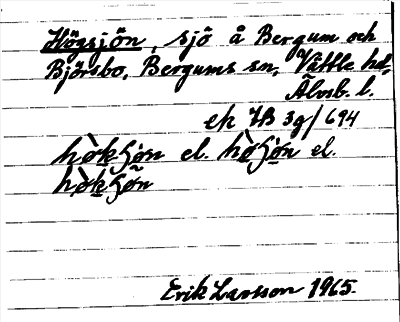 Högsjön, sjö å Bergum och
Björsbo, Bergums sn, Vättle hd,
Älvsb. l.
ek 7B 3g/694
hò̤kʃön el. hò̤ʃö̤n el.
hò̤kʃõn
Erik Larsson 1965.